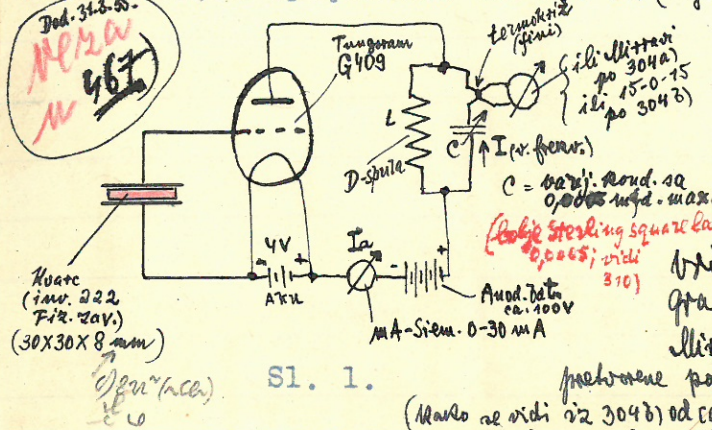 Dod. 31.3.55.
veza
u 467
Tungsram
G409
termokriž
(fini)
ili Mirravi
po 304a)
ili 15-0-15
po 304b)
L
C
I (v. frekv.)
D-spula
C = varij. kond. sa
mfd. max.
(bolje Sterling square la
0,0005; vidi
310)
Kvarc
(inv. 222
Fiz. zav.)
(30X30X8 mm)
4V
Aku
Ia
Anod. bat.
ca. 100V
mA-Siem. 0-30 mA
Sl. 1.
gra
pretvorene po
(Kako se vidi iz 304b) od